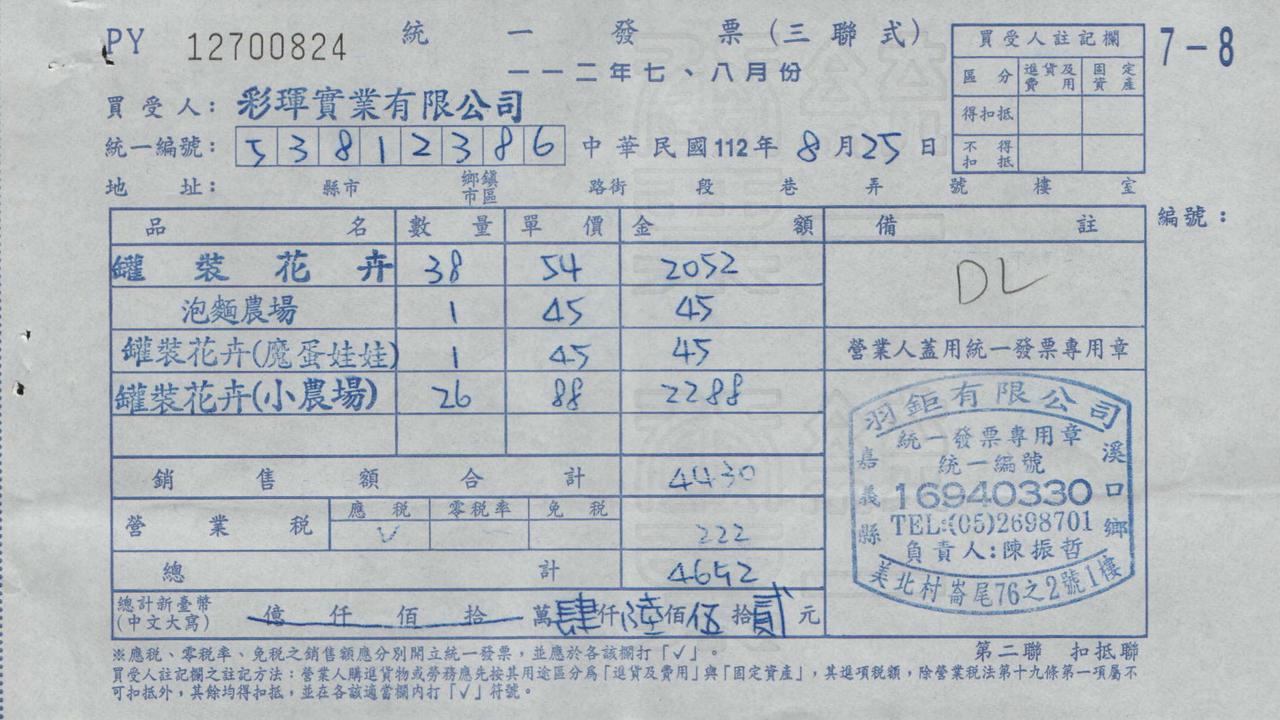 PY 12700824 統一發票(三聯式) 7-8
一一二年七、八月份
買受人註記欄
區分 進貨及費用 固定資產
得扣抵
不得扣抵
買受人: 彩琿實業有限公司
統一編號: 53812386 中華民國112年8月25日
地址: 縣市 鄉鎮市區 路街 段 巷 弄 號 樓 室
品名 數量 單價 金額 備註 編號:
罐裝花卉 38 54 2052 DL
泡麵農場 1 45 45
罐裝花卉(魔蛋娃娃) 1 45 45 營業人蓋用統一發票專用章
罐裝花卉(小農場) 26 88 2288
銷售額合計 4430
營業稅 應稅 零稅率 免稅
V 222
總計 4652
總計新臺幣(中文大寫) 億仟佰拾萬肆仟陸佰伍拾貳元
羽鉅有限公司
統一發票專用章
統一編號
16940330
TEL:(05)2698701
負責人:陳振哲
嘉義縣溪口鄉
美北村崙尾76之2號1樓
第二聯 扣抵聯
※應稅、零稅率、免稅之銷售額應分別開立統一發票,並應於各該欄打「✓」。
買受人註記欄之註記方法:營業人購進貨物或勞務應先按其用途區分為「進貨及費用」與「固定資產」,其進項稅額,除營業稅法第十九條第一項屬不
可扣抵外,其餘均得扣抵,並在各該適當欄內打「✓」符號。